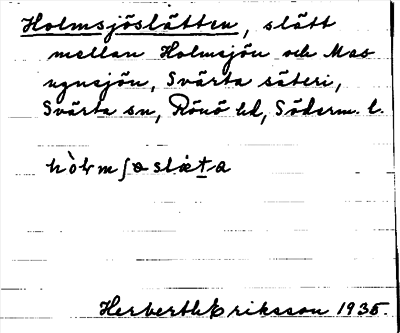 Holmsjöslätten, slätt
mellan Holmsjön och Mas-
ugnsjön, Svärta säteri,
Svärta sn, Rönö hd, Söderm. l.
hòlmʃøslæta
Herbert Eriksson 1935.